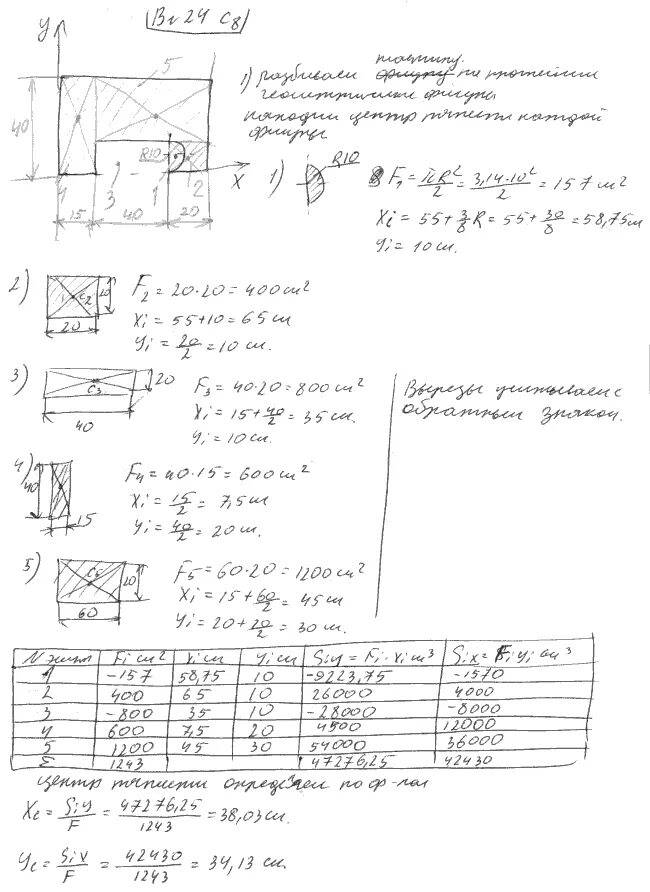 Вг 24 С8
y
5
1) Разбиваем пластину на простейшие
геометрические фигуры
находим центр тяжести каждой
фигуры
40
R10
4 3 1 2 X
15 40 20
1) R10 F₁ = πR²/2 = 3,14·10²/2 = 157 см²
Xi = 55 + 3/8 R = 55 + 30/8 = 58,75 см
Yi = 10 см.
2) C2 20 F₂ = 20·20 = 400 см²
Xi = 55 + 10 = 65 см
20 Yi = 20/2 = 10 см.
3) C3 20 F₃ = 40·20 = 800 см²
40 Xi = 15 + 40/2 = 35 см
Yi = 10 см.
Вырезы учитываем с
обратным знаком.
4) 40 F₄ = 40·15 = 600 см²
15 Xi = 15/2 = 7,5 см
Yi = 40/2 = 20 см.
5) C5 20 F₅ = 60·20 = 1200 см²
60 Xi = 15 + 60/2 = 45 см
Yi = 20 + 20/2 = 30 см.
N Fi см² Xi см Yi см Siy = Fi·Xi см³ Six = Fi yi см³
1 -157 58,75 10 -9223,75 -1570
2 400 65 10 26000 4000
3 -800 35 10 -28000 -8000
4 600 7,5 20 4500 12000
5 1200 45 30 54000 36000
Σ 1243 47276,25 42430
центр тяжести определяем по ф-лам
Xc = Siy/F = 47276,25/1243 = 38,03 см.
Yc = Six/F = 42430/1243 = 34,13 см.